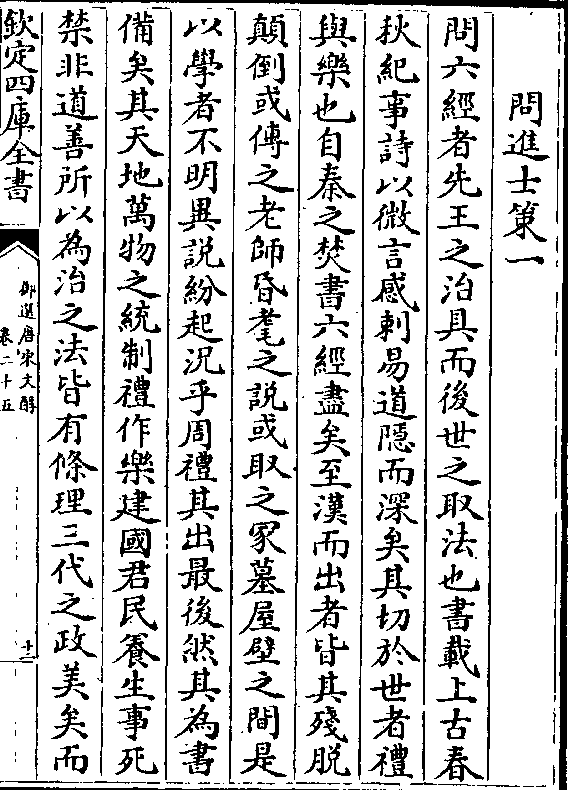 問進士策一
問六經者先王之治具而後世之取法也書載上古春
秋紀事詩以微言感刺易道隱而深矣其切於世者禮
與樂也自秦之焚書六經盡矣至漢而出者皆其殘脱
顛倒或傳之老師昏耄之說或取之冢墓屋壁之間是
以學者不明異說紛起況乎周禮其出最後然其為書
備矣其天地萬物之統制禮作樂建國君民養生事死
禁非道善所以為治之法皆有條理三代之政美矣而
欽定四庫全書
御選唐宋文醇
卷二十五
十二